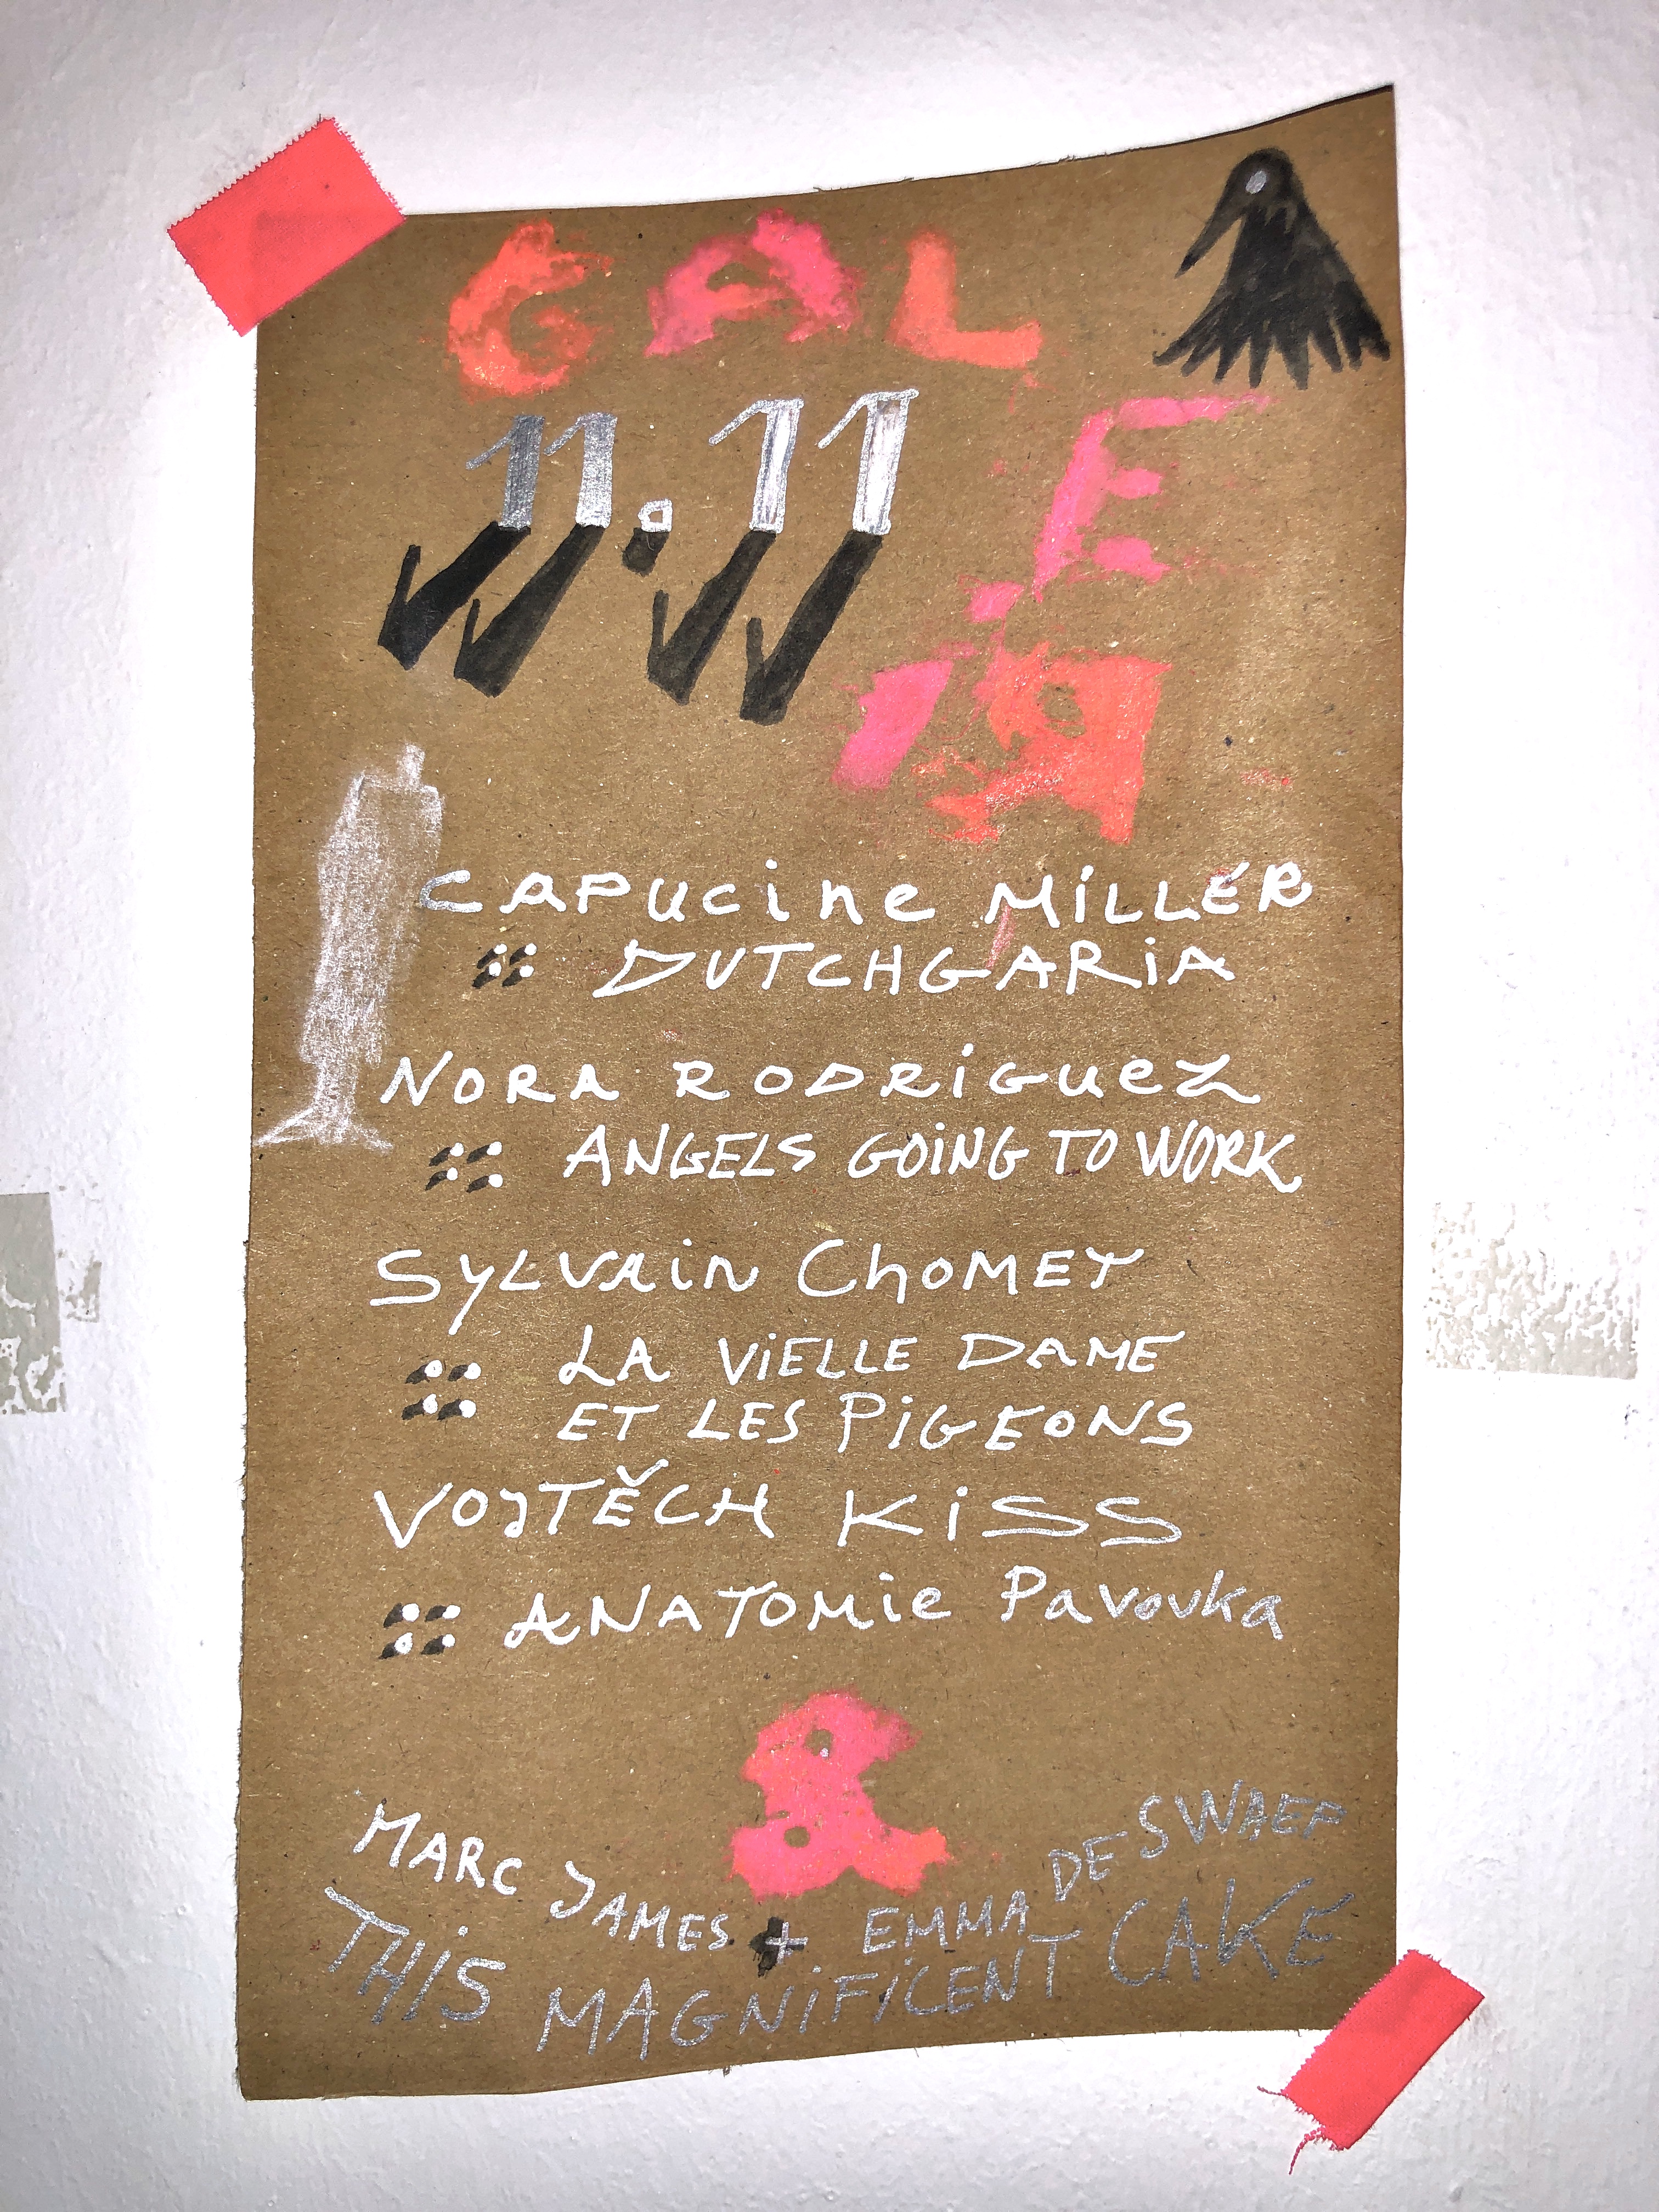 GAL
11.11
E
CAPUCiNe MiLLER
:: DUTCHGARiA
NORA RODRiGUEZ
:: ANGELS GOiNG TO WORK
SYLVAiN CHOMEY
:: LA ViELLE DAME
ET LES PiGEONS
VOJTĚCH KiSS
:: ANATOMie Pavouka
&
MARC JAMES + EMMA DE SWAEF
THiS MAGNiFiCENT CAKE